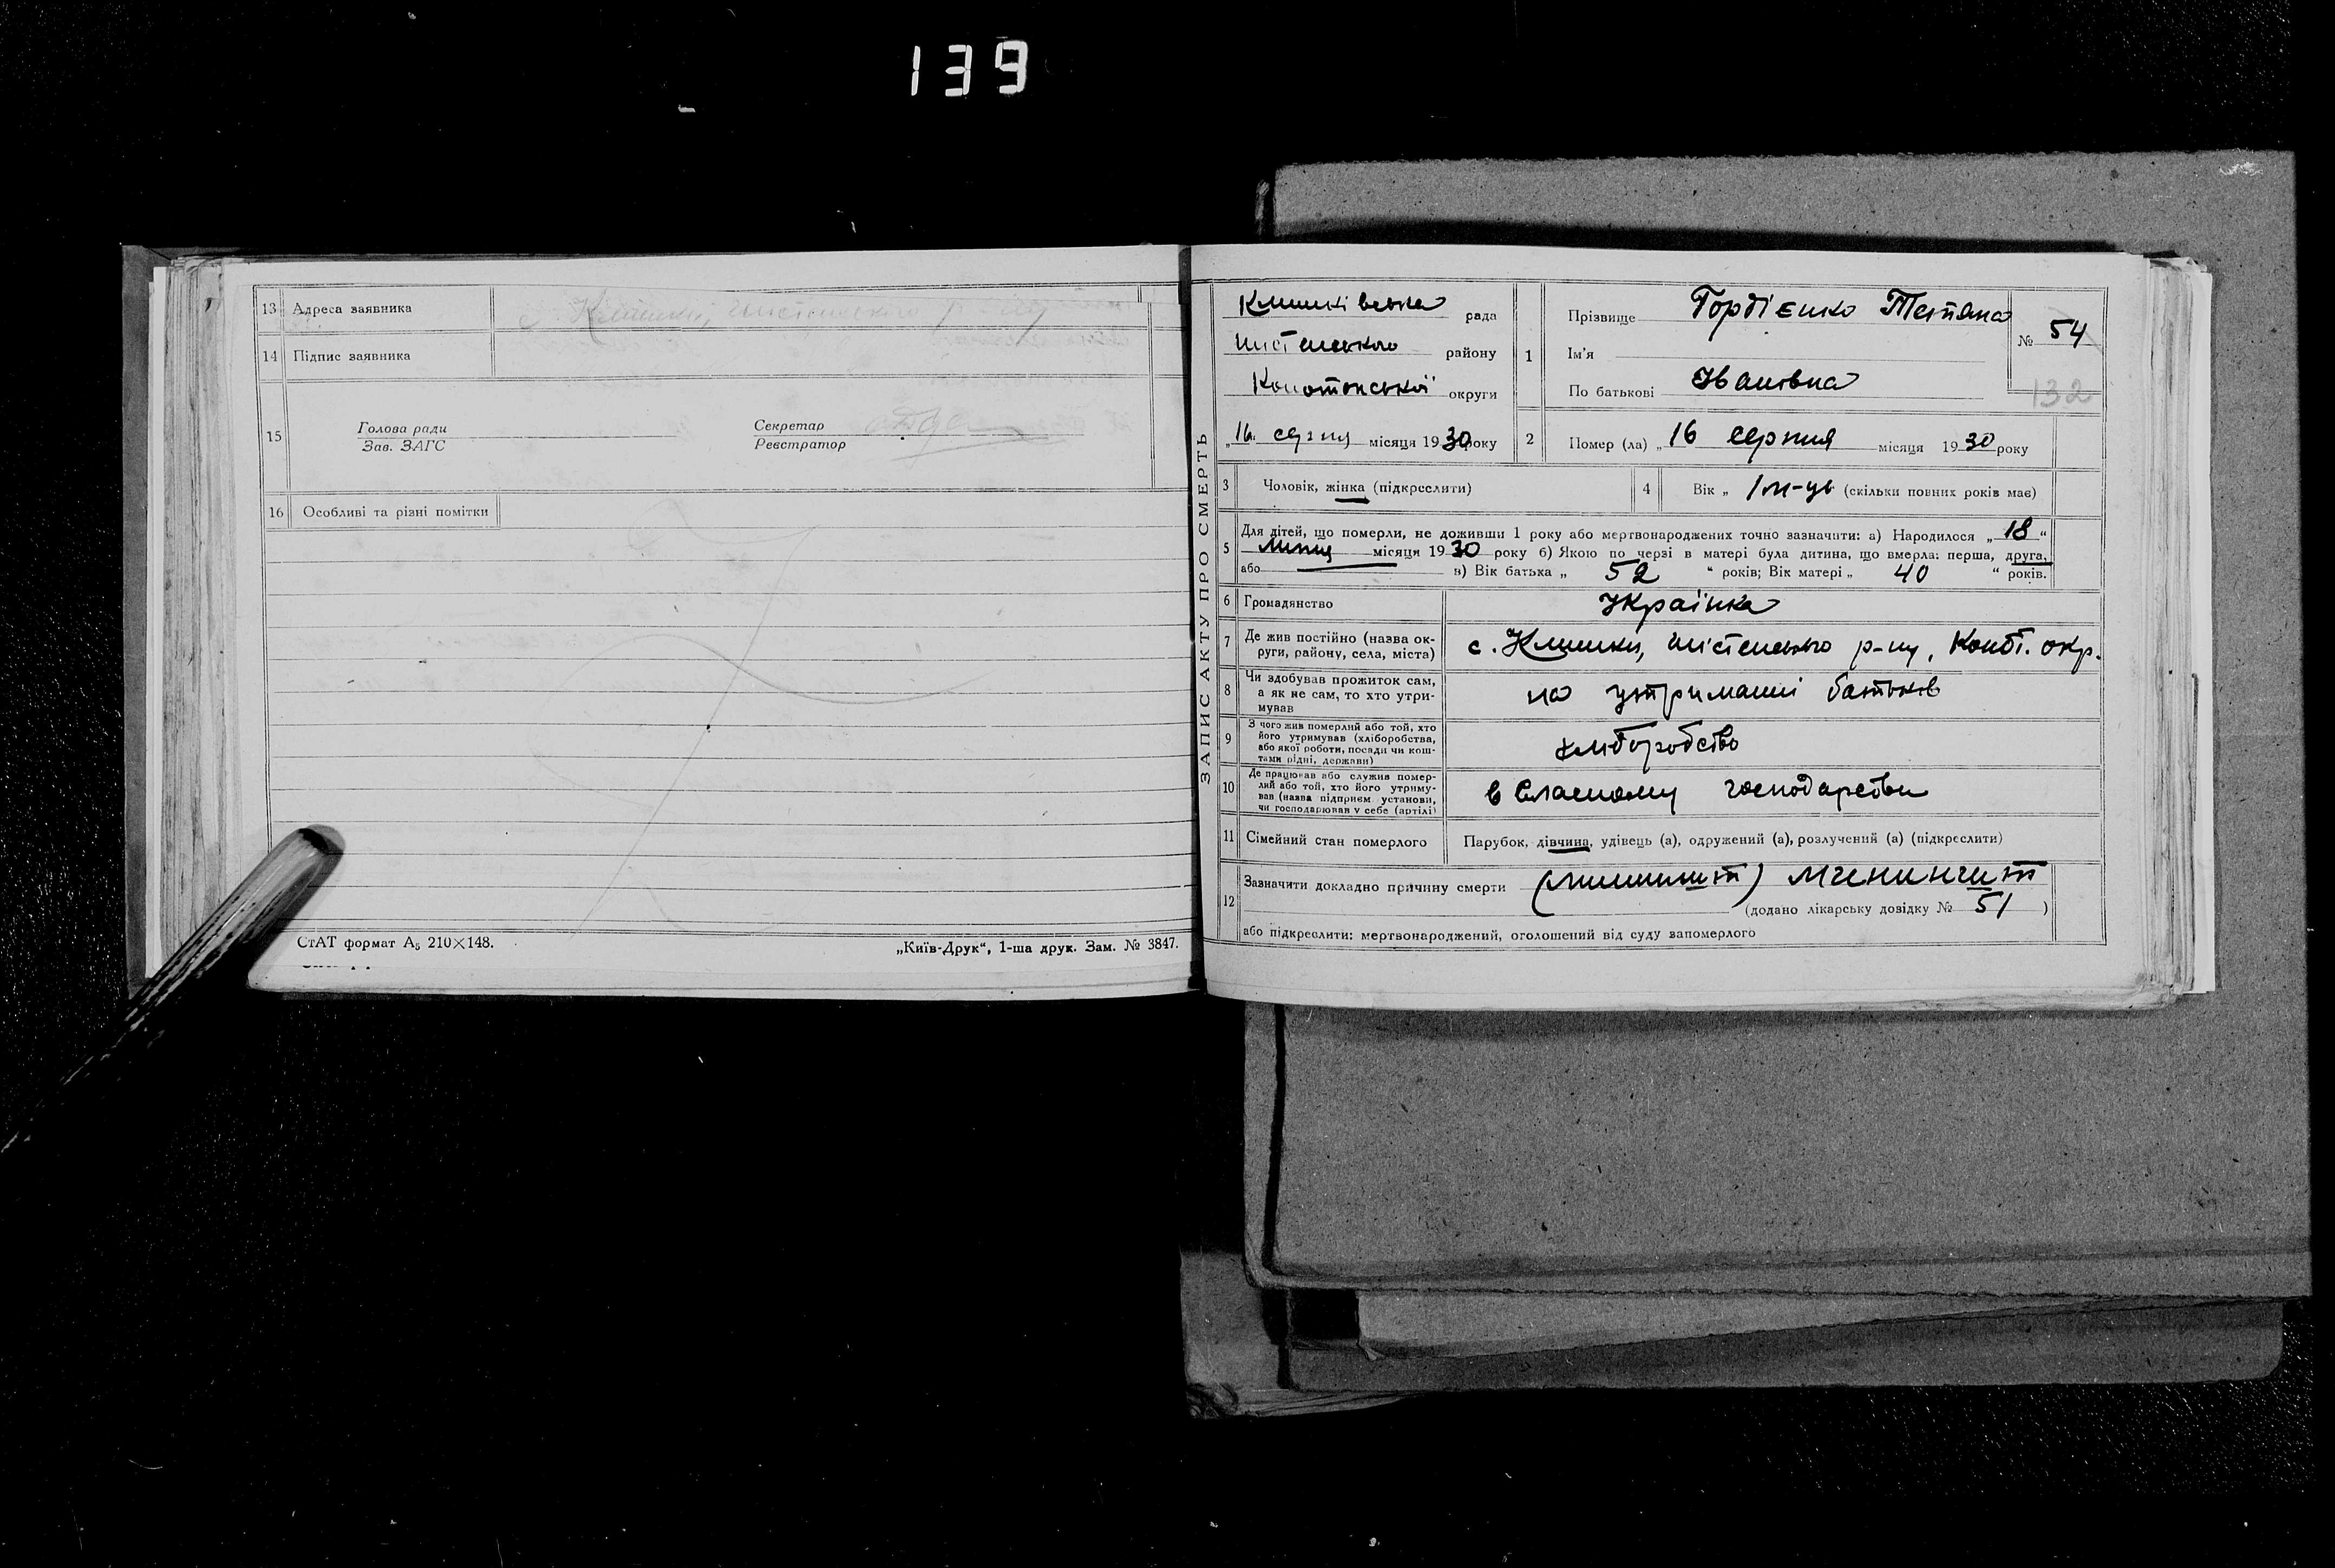 139
13 Адреса заявника с Клишки, Шостенського р-ну
14 Підпис заявника
15 Голова ради
Зав. ЗАГС
Секретар
Реєстратор
16 Особливі та різні помітки
СтАТ формат А5 210×148.
„Київ-Друк“, 1-ша друк. Зам. № 3847.
ЗАПИС АКТУ ПРО СМЕРТЬ
Клишківська рада
району
Конотопської округи
„16 серпня місяця 1930 року
1 Прізвище Гордієнко Тетяна
Ім'я
По батькові Іванівна
№ 54
132
2 Помер (ла) „16 серпня місяця 1930 року
3 Чоловік, жінка (підкреслити)
4 Вік „ 1 м-ць (скільки повних років має)
5 Для дітей, що померли, не доживши 1 року або мертвонароджених точно зазначити: а) Народилося „18“
липця місяця 1930 року б) Якою по черзі в матері була дитина, що вмерла: перша, друга,
або в) Вік батька „ 52 “ років; Вік матері „ 40 “ років.
6 Громадянство Українка
7 Де жив постійно (назва округи, району, села, міста) с. Клишки, р-ну, Конот. окр.
8 Чи здобував прожиток сам, а як не сам, то хто утримував на утриманні батьків
9 З чого жив померлий або той, хто його утримував (хліборобства, або якої роботи, посади чи коштами рідні, держави) хліборобство
10 Де працював або служив померлий або той, хто його утримував (назва підприєм. установи, чи господарював у себе (артілі) в власному господарстви
11 Сімейний стан померлого Парубок, дівчина, удівець (а), одружений (а), розлучений (а) (підкреслити)
12 Зазначити докладно причину смерти
(додано лікарську довідку № 51 )
або підкреслити: мертвонароджений, оголошений від суду запомерлого